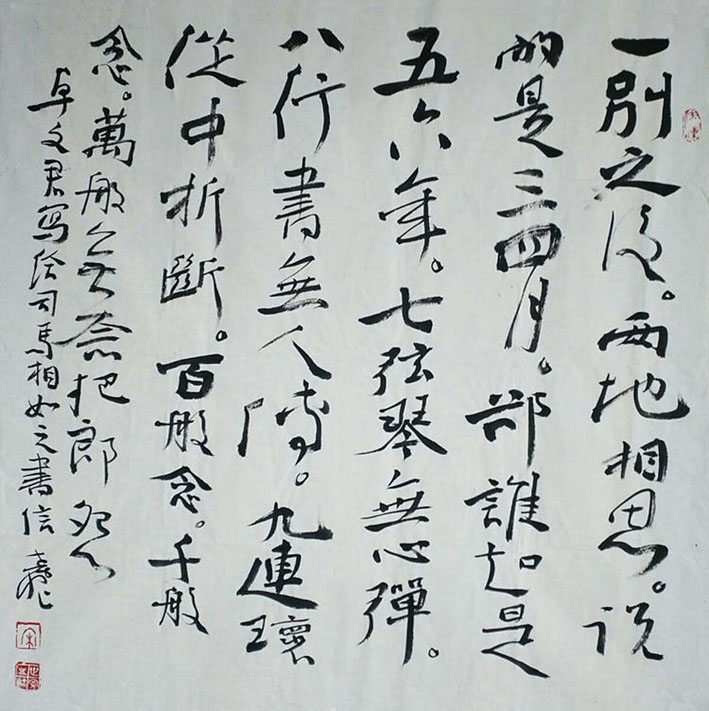 一别之后。两地相思。说
的是三四月。却谁知是
五六年。七弦琴無心彈。
八行書無人传。九連環
從中折斷。百般念。千般
念。萬般无奈把郎怨
卓文君写给司馬相如之書信